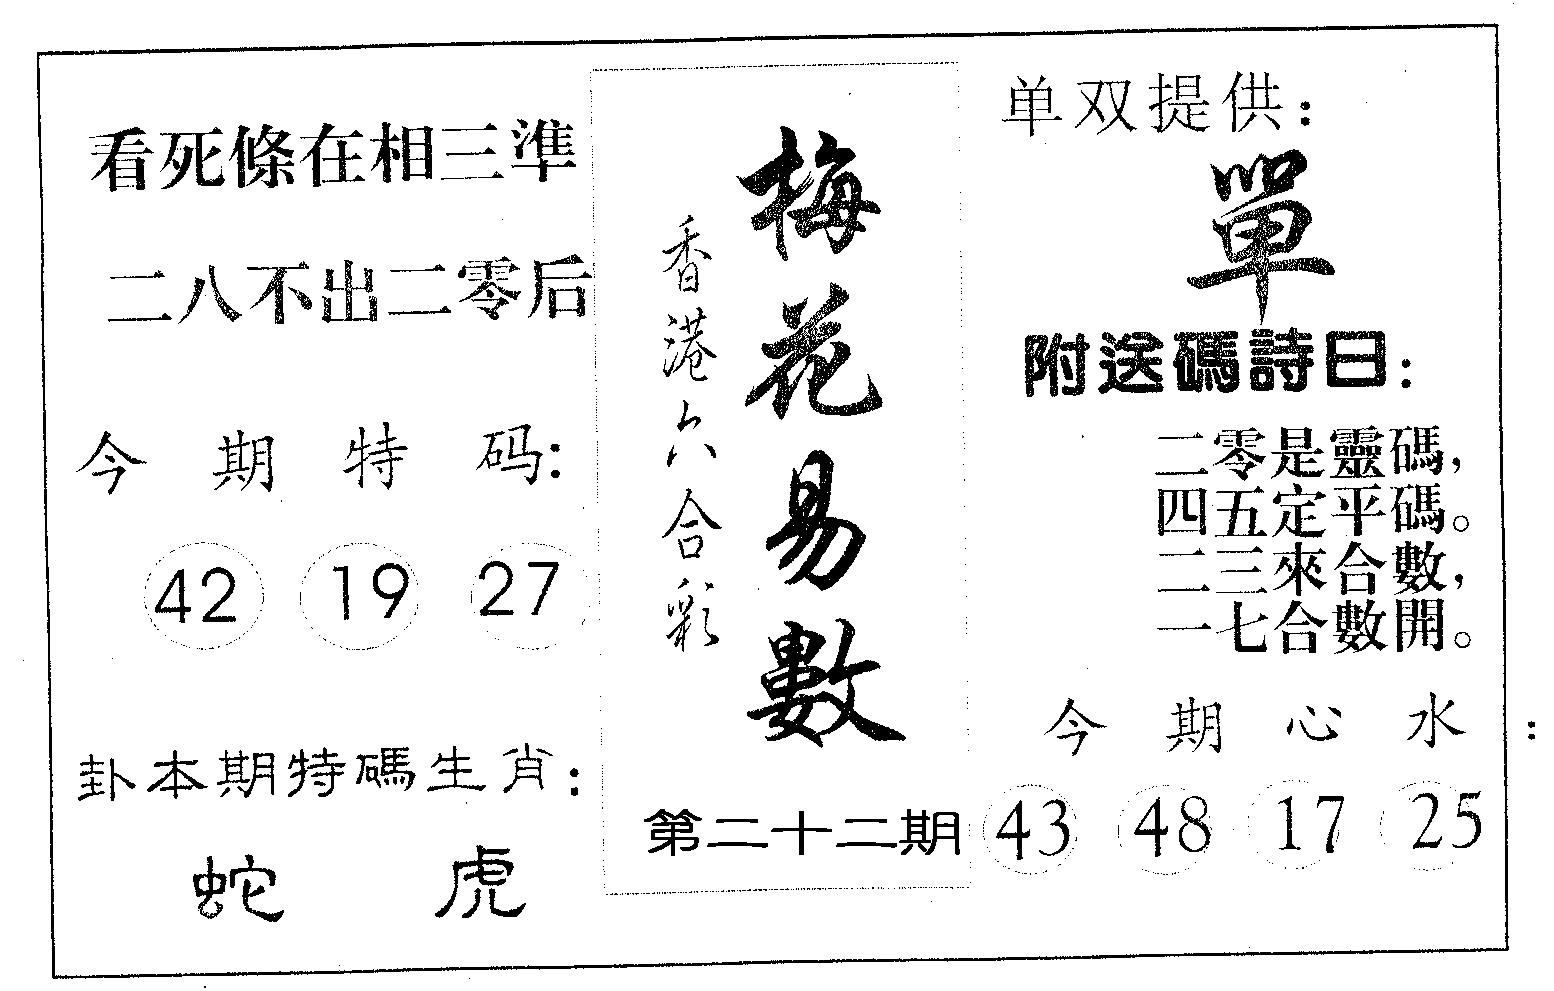 看死條在相三準
二八不出二零后
今期特码:
42 19 27
卦本期特碼生肖:
蛇 虎
梅花易數
香港六合彩
第二十二期
单双提供:
單
附送碼詩曰:
二零是靈碼,
四五定平碼。
二三來合數,
一七合數開。
今期心水:
43 48 17 25